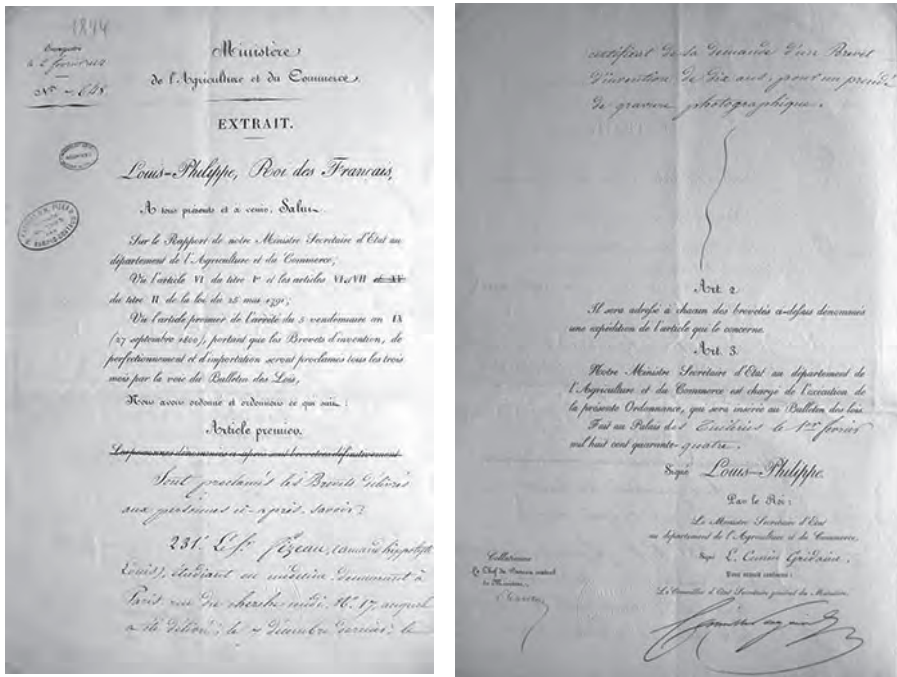 1844
Nº 648
Ministère
de l'Agriculture et du Commerce.
EXTRAIT.
Louis-Philippe, Roi des Français,
A tous présents et à venir, Salut.
Sur le Rapport de notre Ministre Secrétaire d'Etat au
département de l'Agriculture et du Commerce;
Vu l'article VI du titre 1er et les articles VI et VII et XV
du titre II de la loi du 25 mai 1791;
Vu l'article premier de l'arrêté du 5 vendémiaire an IX
(27 septembre 1800), portant que les Brevets d'invention, de
perfectionnement et d'importation seront proclamés tous les trois
mois par la voie du Bulletin des Lois,
Nous avons ordonné et ordonnons ce qui suit :
Article premier.
Les personnes dénommées ci-après sont brevetées définitivement
Sont proclamés les Brevets délivrés
aux personnes ci-après, savoir:
231º Le Sr. Fizeau, (armand hippolyte
Louis), étudiant en médecine demeurant à
Paris rue du cherche midi, Nº 17, auquel
a été délivré, le 7 décembre dernier, le
certificat de sa demande d'un Brevet
d'invention de dix ans, pour un procédé
de gravure photographique.
Art. 2.
Il sera adressé à chacun des brevetés ci-dessus dénommés
une expédition de l'article qui le concerne.
Art. 3.
Notre Ministre Secrétaire d'Etat au département de
l'Agriculture et du Commerce est chargé de l'exécution de
la présente Ordonnance, qui sera insérée au Bulletin des lois.
Fait au Palais des Tuileries le 1er février
mil huit cent quarante-quatre.
Signé Louis-Philippe.
Par le Roi:
Le Ministre Secrétaire d'Etat
au département de l'Agriculture et du Commerce,
Signé L. Cunin Gridaine.
Pour extrait conforme:
Le Conseiller d'Etat Secrétaire général du Ministère,
Collationné
Le Chef du Bureau central
du Ministère,